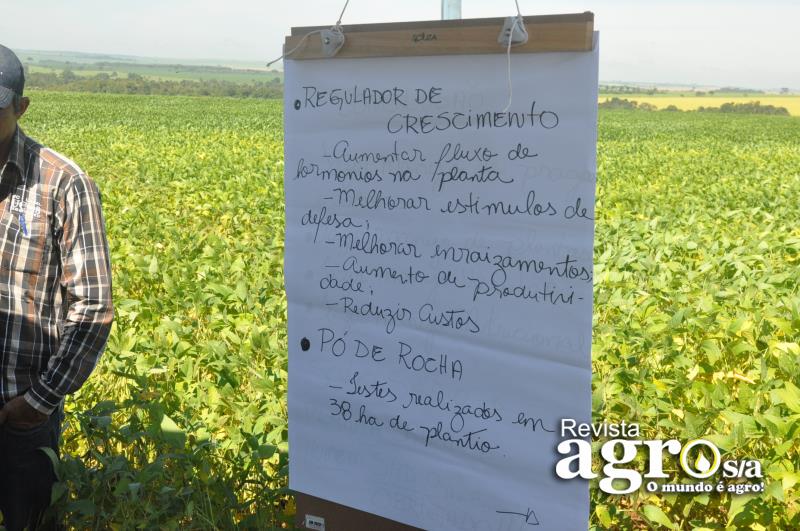 • REGULADOR DE
CRESCIMENTO
- Aumentar fluxo de
hormonios na planta
- Melhorar estimulos de
defesa;
- Melhorar enraizamentos;
- Aumento de produtivi-
dade;
- Reduzir Custos
• PÓ DE ROCHA
- Testes realizados em
38 ha de plantio.
Revista
agro s/a
O mundo é agro!